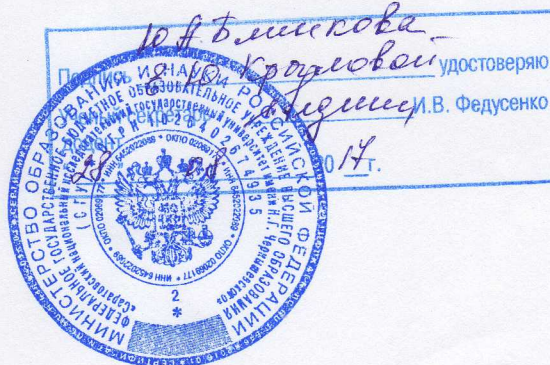 Ю.А. Блинкова
Подпись Е.Ю. Крыловой удостоверяю
И.В. Федусенко
28 08 2017 г.
МИНИСТЕРСТВО ОБРАЗОВАНИЯ И НАУКИ РОССИЙСКОЙ ФЕДЕРАЦИИ
ФЕДЕРАЛЬНОЕ ГОСУДАРСТВЕННОЕ БЮДЖЕТНОЕ ОБРАЗОВАТЕЛЬНОЕ УЧРЕЖДЕНИЕ ВЫСШЕГО ОБРАЗОВАНИЯ
«Саратовский национальный исследовательский государственный университет имени Н.Г. Чернышевского»
ОГРН 1026402674935
ОКПО 02069177 * ИНН 6452022659
2
*